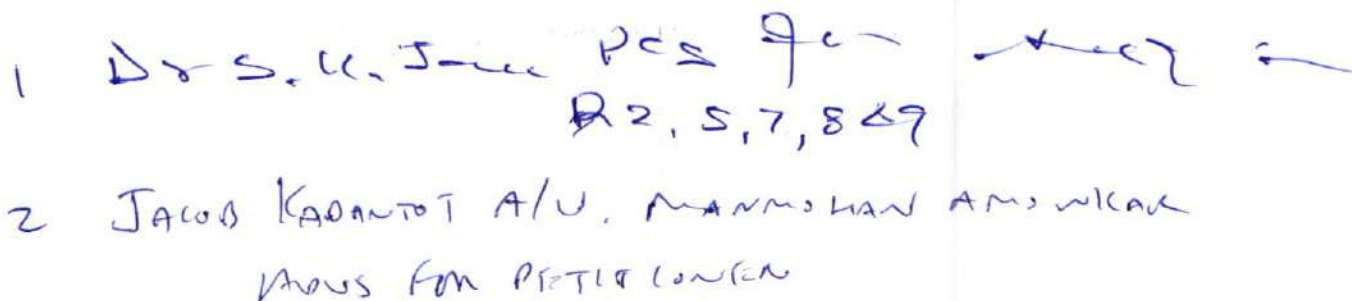 1 Dr S. K. Jain PCS for
R2, 5, 7, 8 & 9
2 JACOB KADANTOT A/W. MANMOHAN AMONKAR
ADVS FOR PETITIONER